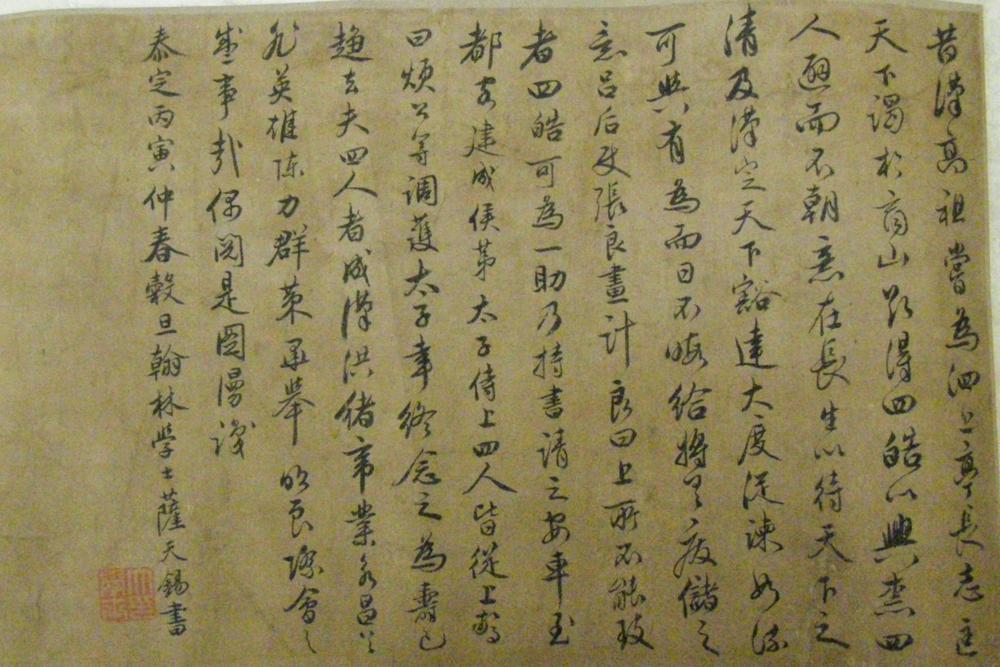 昔漢高祖嘗為泗上亭長志匡
天下謁於商山欲得四皓以興焉四
人避而不朝意在長生以待天下之
清及漢定天下豁達大度從諫如流
可興有為而日不暇給將廢儲之
意呂后使張良畫計良曰上所不能致
者四皓可為一助乃持書請之安車至
都客建成侯第太子侍上四人皆從上
曰煩公等調護太子幸終念之為壽已
趨去夫四人者成漢洪緒帝業永昌
英雄陳力群策畢舉明良際會之
盛事哉偶閱是圖漫識
泰定丙寅仲春穀旦翰林學士薩天錫書